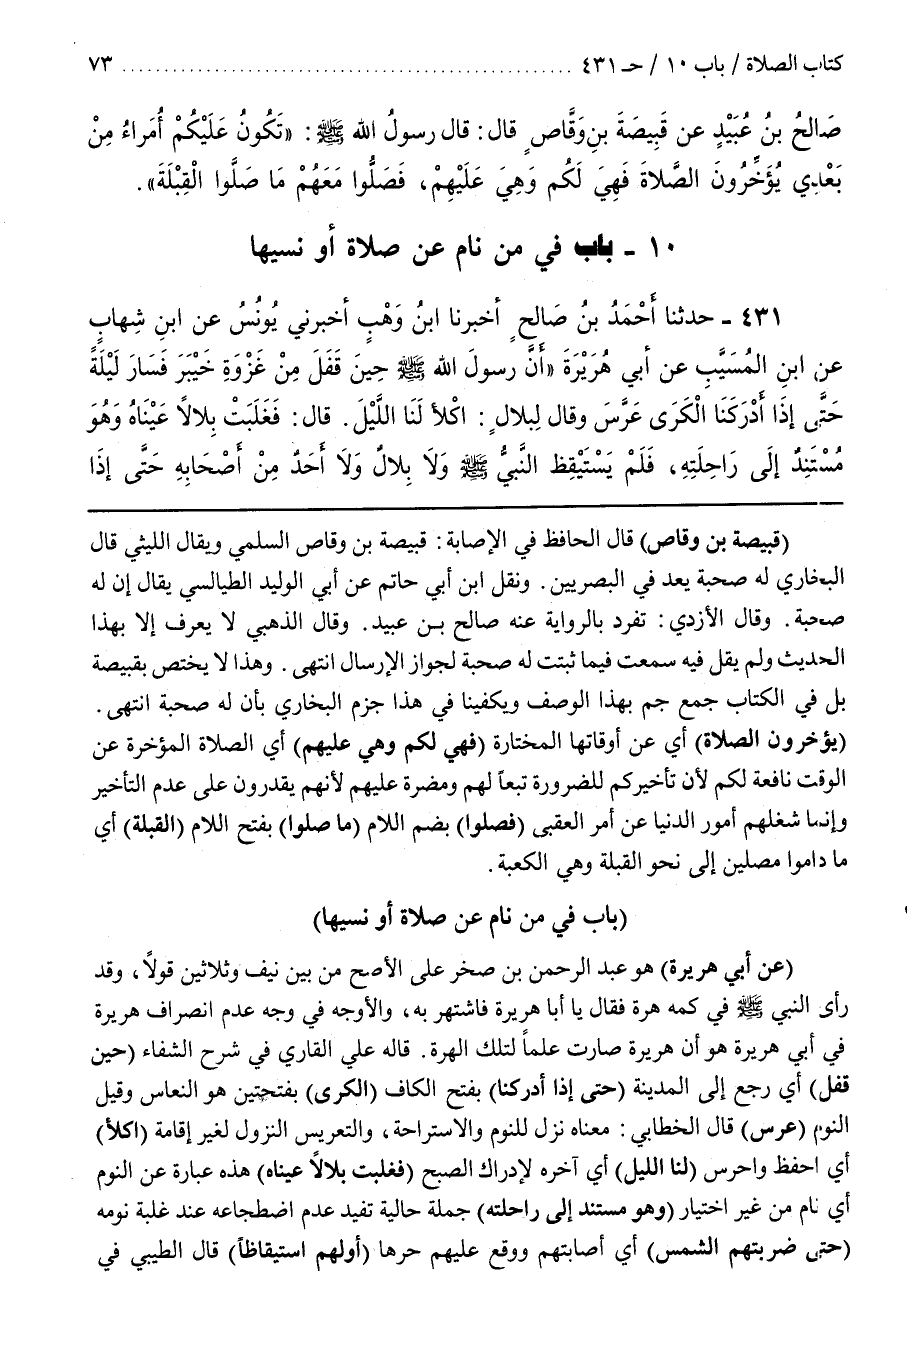 كتاب الصلاة / باب ١٠ / حـ ٤٣١ ..................................................... ٧٣
صَالحُ بنُ عُبَيْدٍ عن قَبِيصَةَ بنِ وَقَّاصٍ قال: قال رسولُ الله ﷺ: «تَكُونُ عَلَيْكُمْ أُمَراءُ مِنْ
بَعْدِي يُؤَخِّرُونَ الصَّلاةَ فَهِيَ لَكُم وَهِيَ عَلَيْهِمْ، فَصَلُّوا مَعَهُمْ مَا صَلَّوا الْقِبْلَةَ».
١٠ - باب في من نام عن صلاة أو نسيها
٤٣١ - حدثنا أَحْمَدُ بنُ صَالحٍ أخبرنا ابنُ وَهْبٍ أخبرني يُونُسُ عن ابنِ شِهابٍ
عن ابنِ المُسَيَّبِ عن أبي هُرَيْرَةَ «أنَّ رسولَ الله ﷺ حِينَ قَفَلَ مِنْ غَزْوَةِ خَيْبَرَ فَسَارَ لَيْلَةً
حَتَّى إذَا أَدْرَكَنَا الْكَرَى عَرَّسَ وقال لِبلالٍ: اكْلأ لَنَا اللَّيْلَ. قال: فَغَلَبَتْ بِلالاً عَيْنَاهُ وَهُوَ
مُسْتَنِدٌ إلَى رَاحِلَتِهِ، فَلَمْ يَسْتَيْقِظ النَّبيُّ ﷺ وَلَا بِلالٌ وَلَا أَحَدٌ مِنْ أصْحَابِهِ حَتَّى إذَا
(قبيصة بن وقاص) قال الحافظ في الإصابة: قبيصة بن وقاص السلمي ويقال الليثي قال
البخاري له صحبة يعد في البصريين. ونقل ابن أبي حاتم عن أبي الوليد الطيالسي يقال إن له
صحبة. وقال الأزدي: تفرد بالرواية عنه صالح بـن عبيد. وقال الذهبي لا يعرف إلا بهذا
الحديث ولم يقل فيه سمعت فيما ثبتت له صحبة لجواز الإرسال انتهى. وهذا لا يختص بقبيصة
بل في الكتاب جمع جم بهذا الوصف ويكفينا في هذا جزم البخاري بأن له صحبة انتهى.
(يؤخرون الصلاة) أي عن أوقاتها المختارة (فهي لكم وهي عليهم) أي الصلاة المؤخرة عن
الوقت نافعة لكم لأن تأخيركم للضرورة تبعاً لهم ومضرة عليهم لأنهم يقدرون على عدم التأخير
وإنما شغلهم أمور الدنيا عن أمر العقبى (فصلوا) بضم اللام (ما صلوا) بفتح اللام (القبلة) أي
ما داموا مصلين إلى نحو القبلة وهي الكعبة.
(باب في من نام عن صلاة أو نسيها)
(عن أبي هريرة) هو عبد الرحمن بن صخر على الأصح من بين نيف وثلاثين قولاً، وقد
رأى النبي ﷺ في كمه هرة فقال يا أبا هريرة فاشتهر به، والأوجه في وجه عدم انصراف هريرة
في أبي هريرة هو أن هريرة صارت علماً لتلك الهرة. قاله علي القاري في شرح الشفاء (حين
قفل) أي رجع إلى المدينة (حتى إذا أدركنا) بفتح الكاف (الكرى) بفتحتين هو النعاس وقيل
النوم (عرس) قال الخطابي: معناه نزل للنوم والاستراحة، والتعريس النزول لغير إقامة (اكلأ)
أي احفظ واحرس (لنا الليل) أي آخره لإدراك الصبح (فغلبت بلالاً عيناه) هذه عبارة عن النوم
أي نام من غير اختيار (وهو مستند إلى راحلته) جملة حالية تفيد عدم اضطجاعه عند غلبة نومه
(حتى ضربتهم الشمس) أي أصابتهم ووقع عليهم حرها (أولهم استيقاظاً) قال الطيبي في